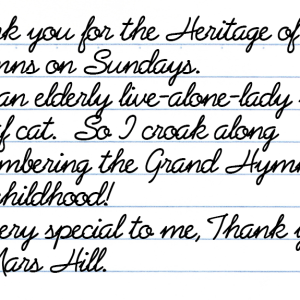 nk you for the Heritage of
mns on Sundays.
an elderly live-alone-lady
f cat. So I croak along
mbering the Grand Hym
childhood!
ery special to me, Thank y
Mars Hill.